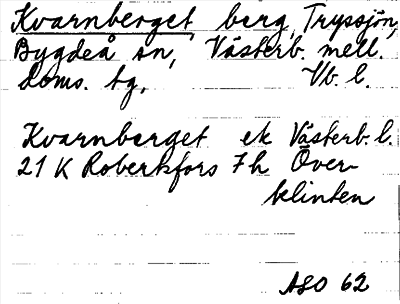 Kvarnberget berg, Tryssjön,
Bygdeå sn, Västerb. mell.
doms. tg. Vb. l.
Kvarnberget ek Västerb. l.
21 K Robertsfors 7h Över-
klinten
ASO 62